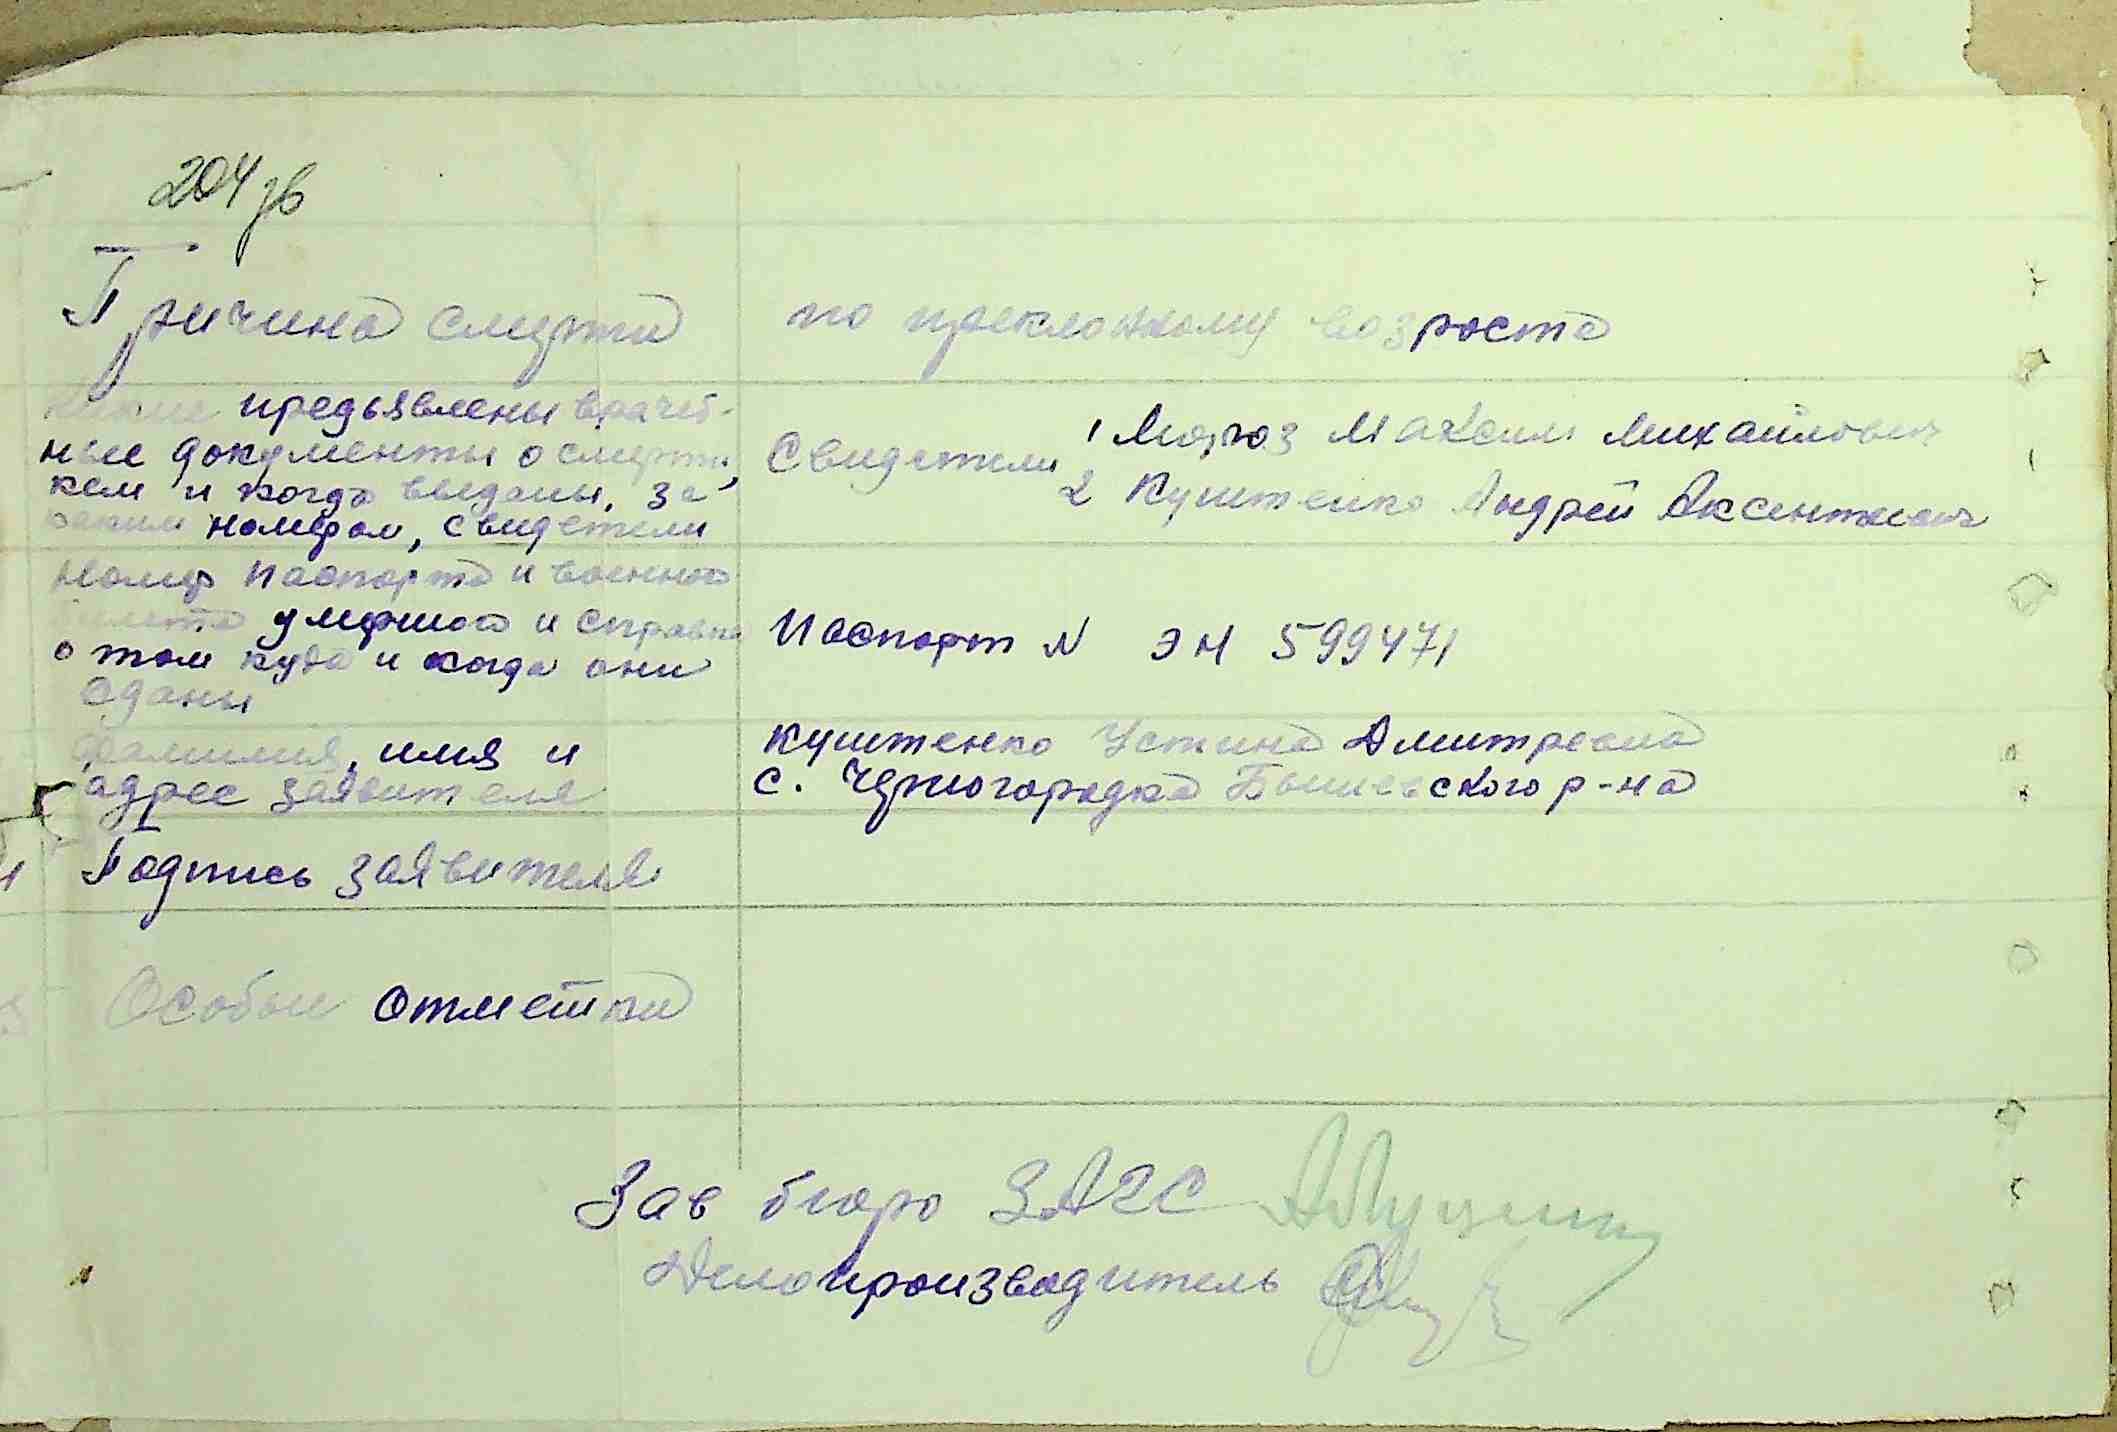 204 зв
Причина смерти
по преклонному возроста
какие предьявлены врачеб-
ные документы о смерти,
кем и когда выданы, за
каким номером, свидетели
Свидетели 1 Мороз Максим Михайлович
2 Куштенко Андрей Аксентиевич
Номер паспорта и военного
билета умершого и справка
о том куда и когда они
сданы
Паспорт N ЭН 599471
Фамилия, имя и
адрес заявителя
Куштенко Устина Дмитревна
с. Черногородка Бышевского р-на
Подпись заявителя
Особые отметки
Зав бюро ЗАГС
Делопроизводитель